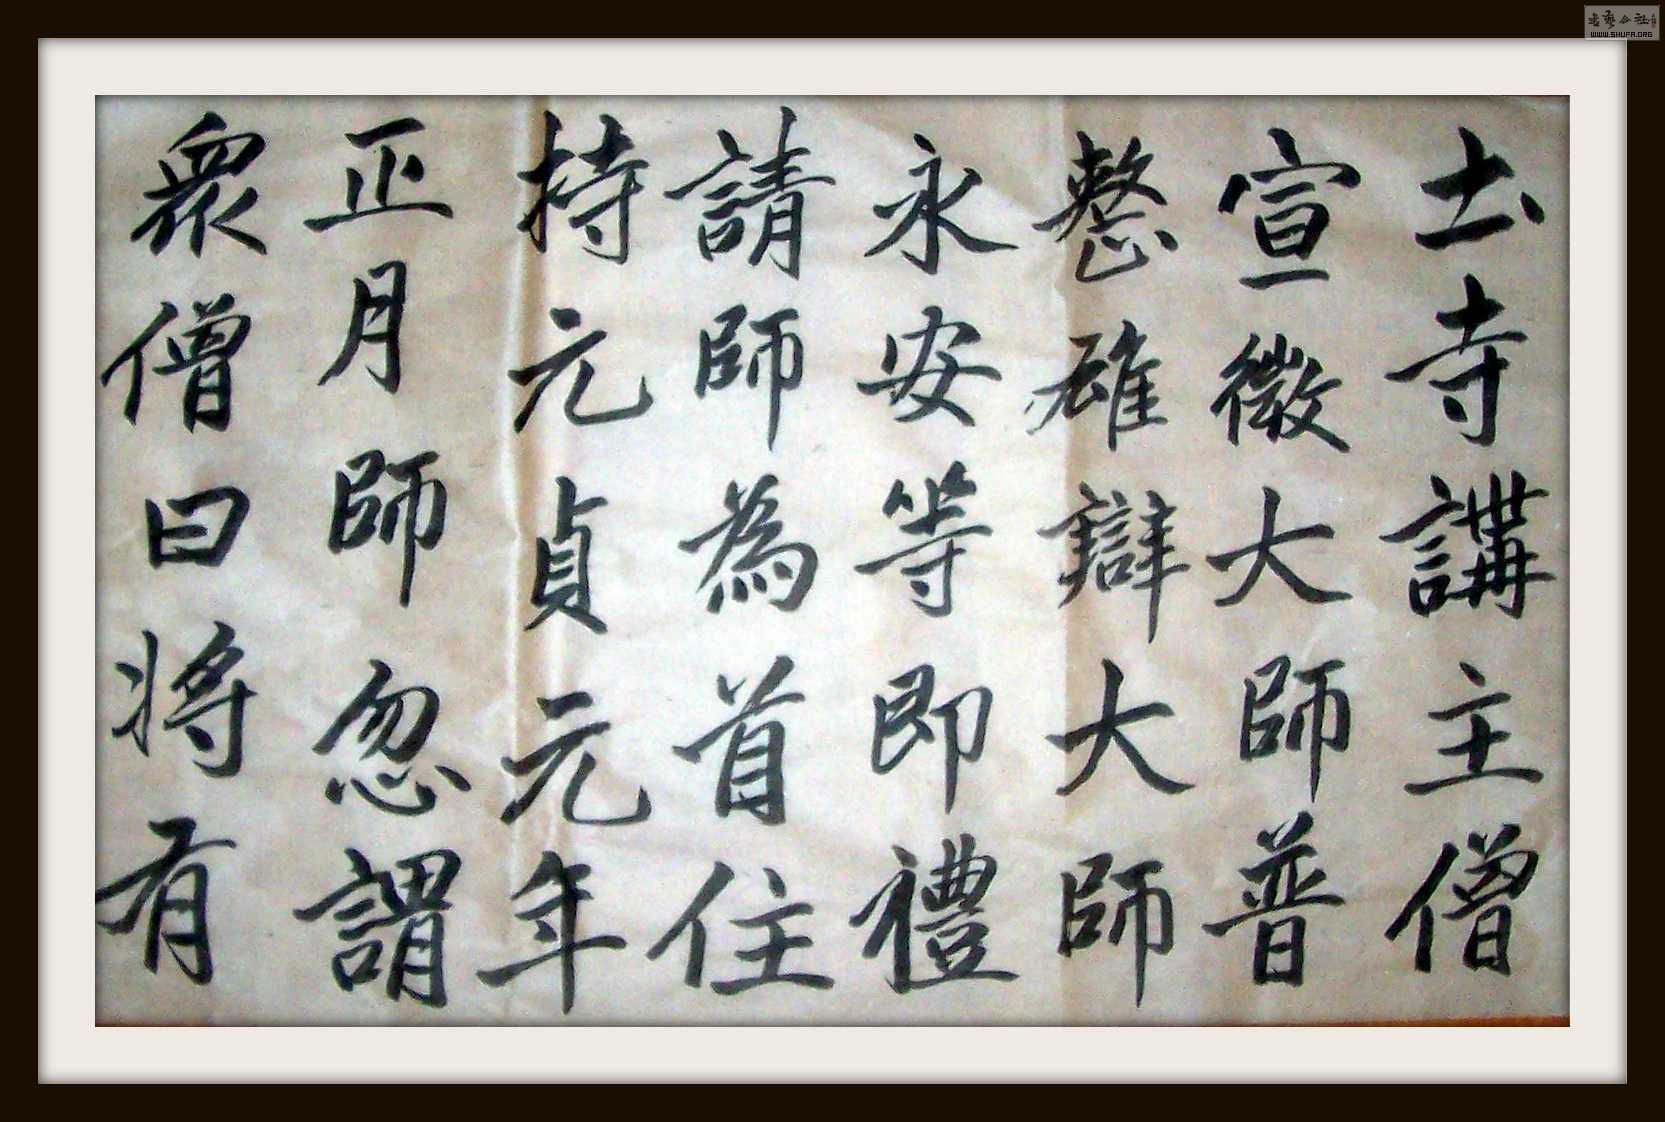 土寺講主僧
宣微大師普
整雄辯大師
永安等即禮
請師為首住
持元貞元年
正月師忽謂
衆僧曰将有
WWW.SHUFA.ORG